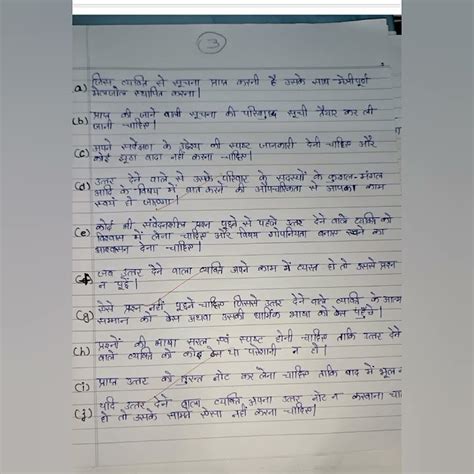 3
a) जिस व्यक्ति से सूचना प्राप्त करनी है उसके साथ मैत्रीपूर्ण
मेलजोल स्थापित करना।
(b) प्राप्त की जाने वाली सूचना की परिशुद्ध सूची तैयार कर ली
जानी चाहिए।
(c) अपने सर्वेक्षण के उद्देश्य की स्पष्ट जानकारी देनी चाहिए और
कोई झूठा वादा नहीं करना चाहिए।
(d) उत्तर देने वाले से उसके परिवार के सदस्यों के कुशल-मंगल
आदि के विषय में बात करने की औपचारिकता से आपका काम
हो जाएगा।
(e) कोई भी संवेदनशील प्रश्न पूछने से पहले उत्तर देने वाले व्यक्ति को
विश्वास में लेना चाहिए और विषय गोपनियता बनाए रखने का
आश्वासन देना चाहिए।
जब उत्तर देने वाला व्यक्ति अपने काम में व्यस्त हो तो उससे प्रश्न
न पूछें।
(g) ऐसे प्रश्न नहीं पूछने चाहिए जिससे उत्तर देने वाले व्यक्ति के आत्म
सम्मान को ठेस अथवा उसकी धार्मिक भाषा को ठेस पहुंचे।
(h) प्रश्नों की भाषा सरल एवं स्पष्ट होनी चाहिए ताकि उत्तर देने
वाले व्यक्ति को कोई ठेस या परेशानी न हो।
(i) प्राप्त उत्तर को तुरन्त नोट कर लेना चाहिए ताकि बाद में भूल न
(j) यदि उत्तर देने वाला व्यक्ति अपना उत्तर नोट न करवाना चा
हो तो उसके सामने ऐसा नहीं करना चाहिए।